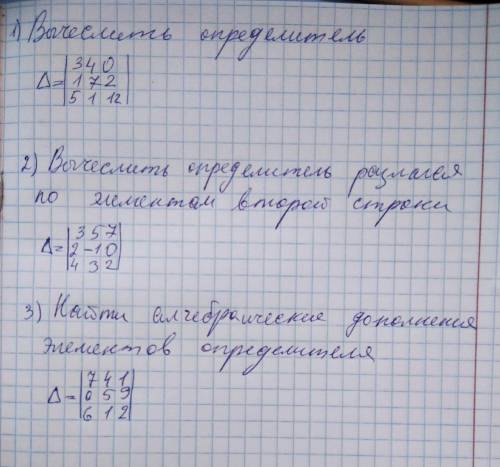 1) Вычеслить определитель
3 4 0
Δ= 1 7 2
5 1 12
2) Вычеслить определитель разлагая
по элементам второй строки
3 5 7
Δ= 2 -1 0
4 3 2
3) Найти алгебраические дополнения
элементов определителя
7 4 1
Δ= 0 5 9
6 1 2